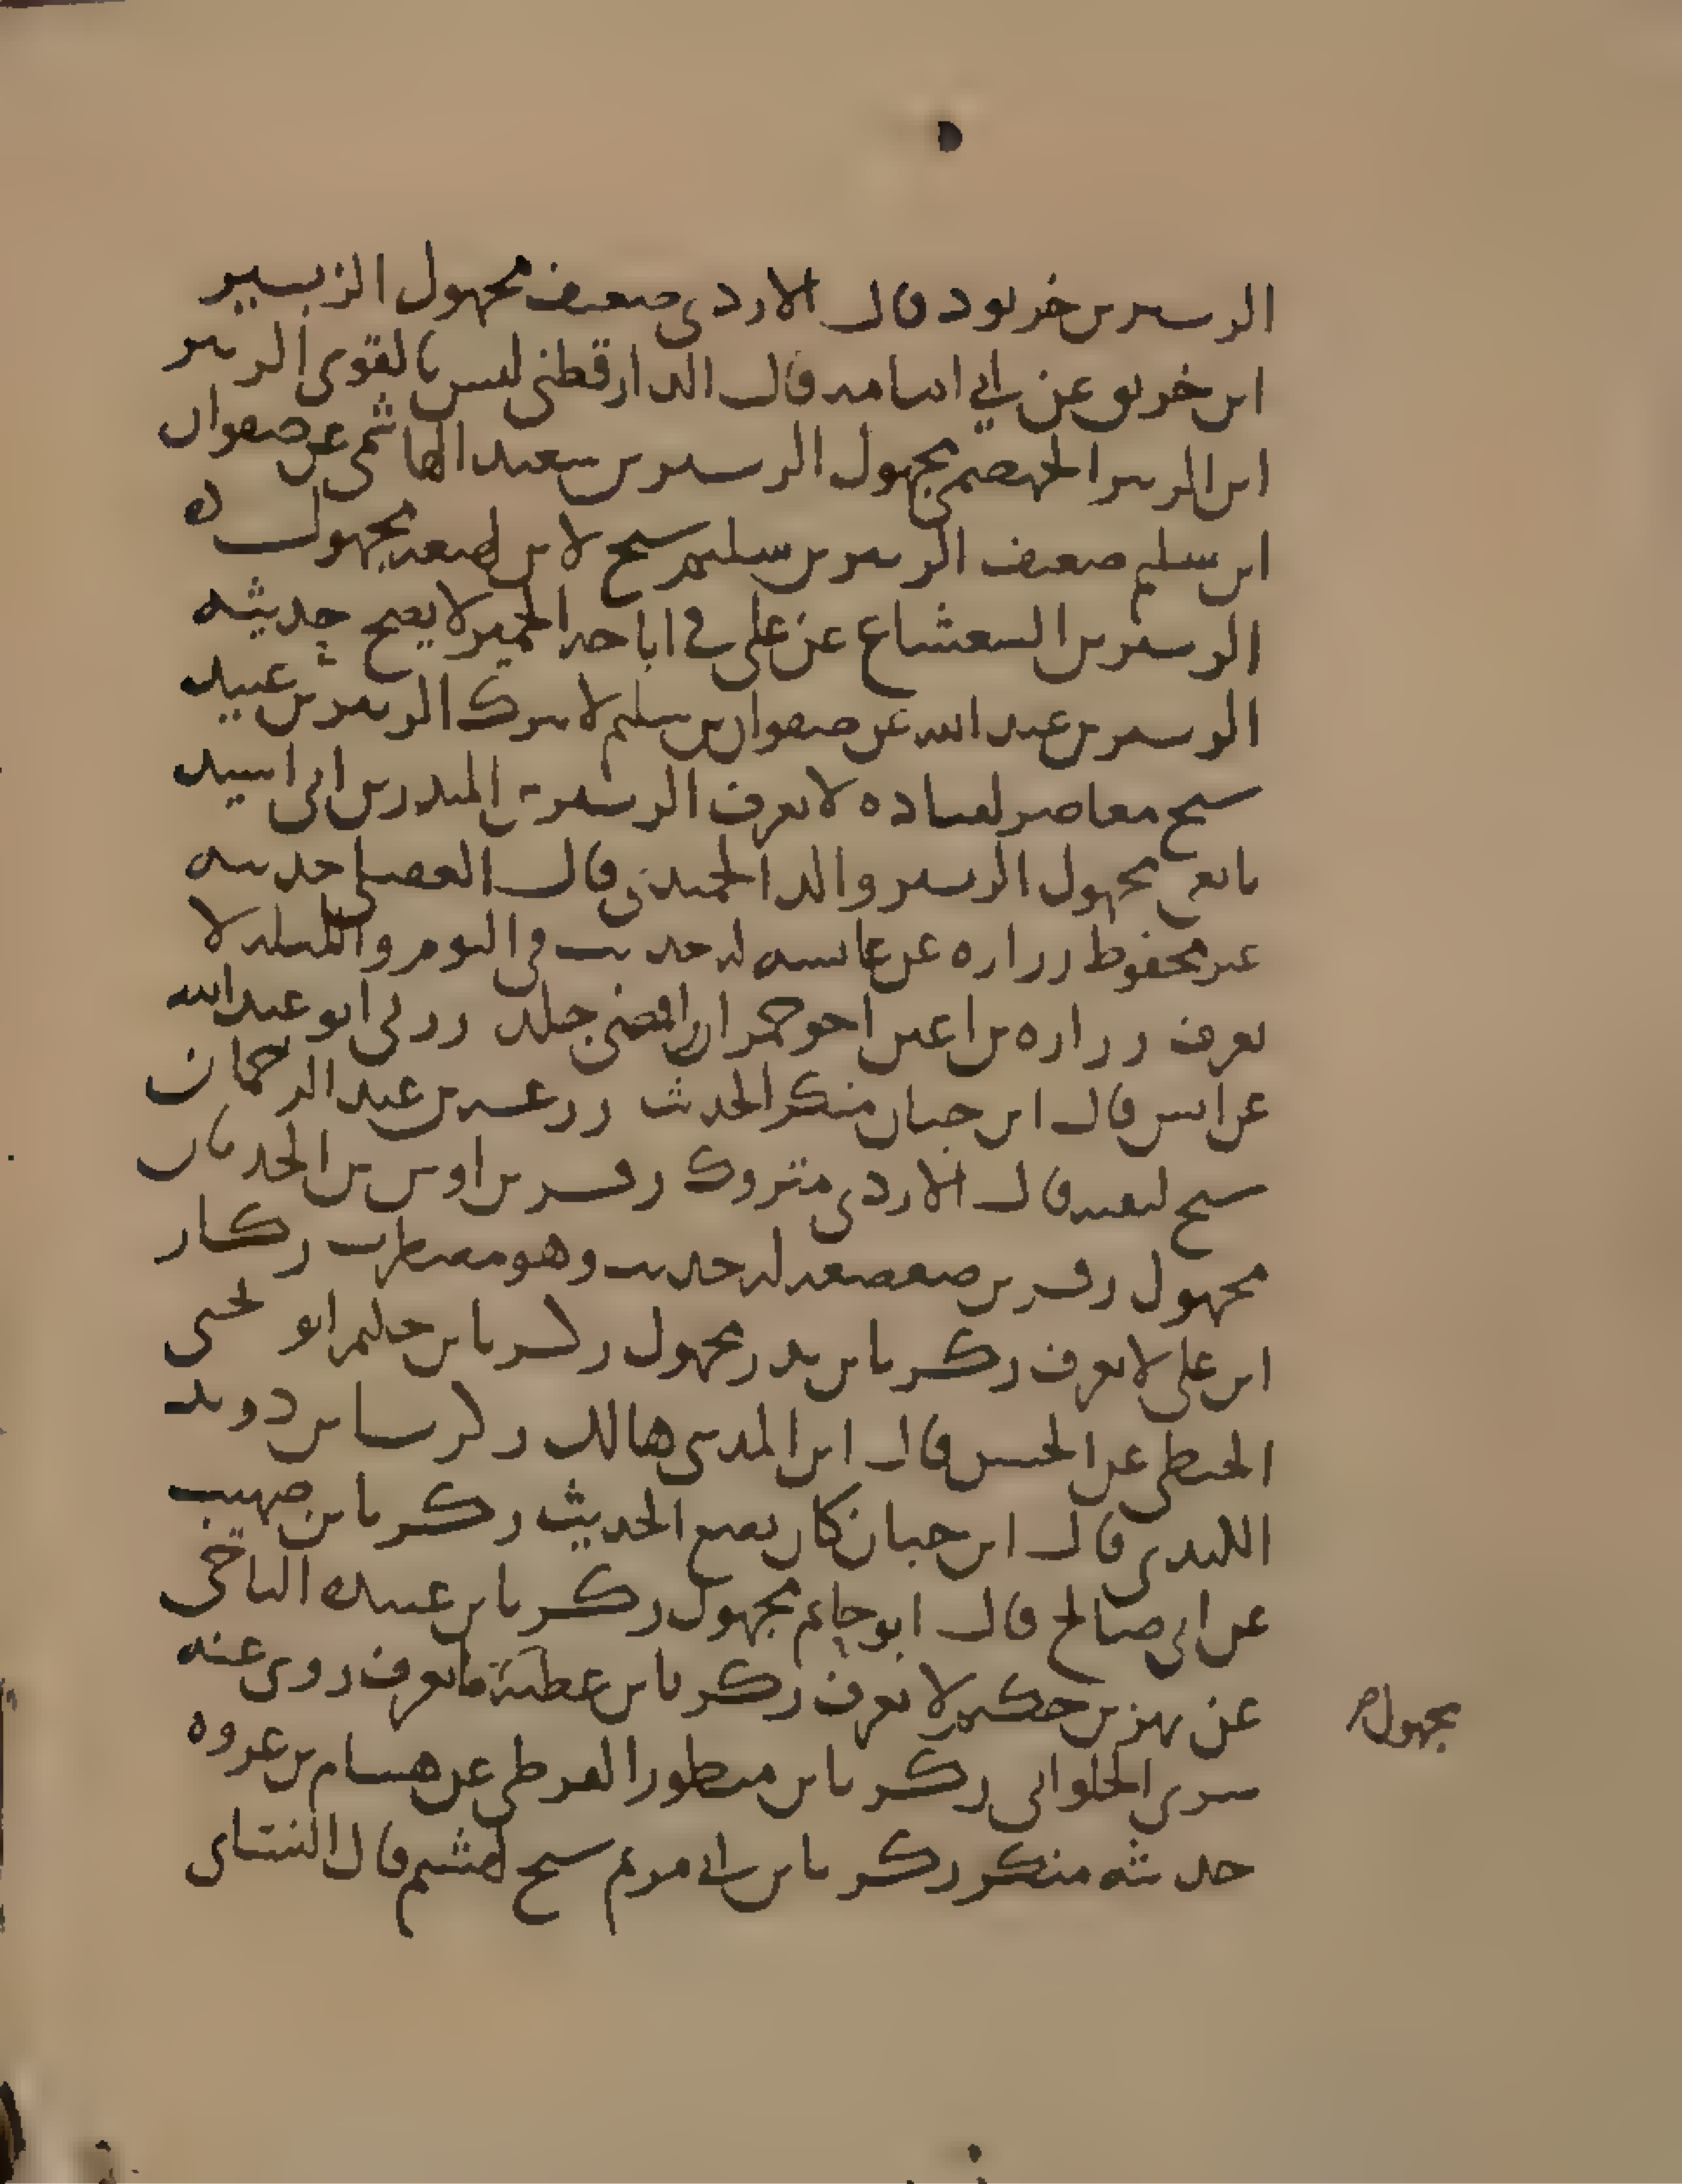 الزبير بن خربوذ قال الازدي ضعيف مجهول الزبير
ابن خريق عن ابي امامه قال الدارقطني ليس بالقوي الزبير
ابن الزبير الجهضمي مجهول الزبير بن سعيد الهاشمي عن صفوان
ابن سليم ضعيف الزبير بن سليم شيخ لابن لهيعه مجهول ه
الزبير بن الشعشاع عن علي في اباحه الحمير لا يصح حديثه
الزبير بن عبد الله عن صفوان بن سليم لا يترك الزبير بن عبيد
شيخ معاصر لقتاده لا يعرف الزبير بن المنذر بن ابي اسيد
تابعي مجهول الزبير والد الحميدي قال العقيلي حديثه
غير محفوظ زراره عن عائشه له حديث في اليوم والليله لا
يعرف زراره بن اعين اخو حمران رافضي جلد زربي ابو عبد الله
عن انس قال ابن حبان منكر الحديث زرعه بن عبد الرحمان
شيخ لبقيه قال الازدي متروك زفر بن اوس بن الحدثان
مجهول زفر بن صعصعه له حديث وهو مضطرب زكار
ابن علي لا يعرف زكريا بن بدر مجهول زكريا بن حكيم ابو يحيى
الحبطي عن الحسن قال ابن المديني هالك زكريا بن دويد
الكندي قال ابن حبان كان يضع الحديث زكريا بن صهيب
عن ابي صالح قال ابو حاتم مجهول زكريا بن عبد الله الناجي
عن بهز بن حكيم لا يعرف زكريا بن عطية ما يعرف روى عنه
سري الحلواني زكريا بن منظور القرظي عن هشام بن عروه
حديثه منكر زكريا بن ابي مريم شيخ لهشيم قال النسائي
مجهول